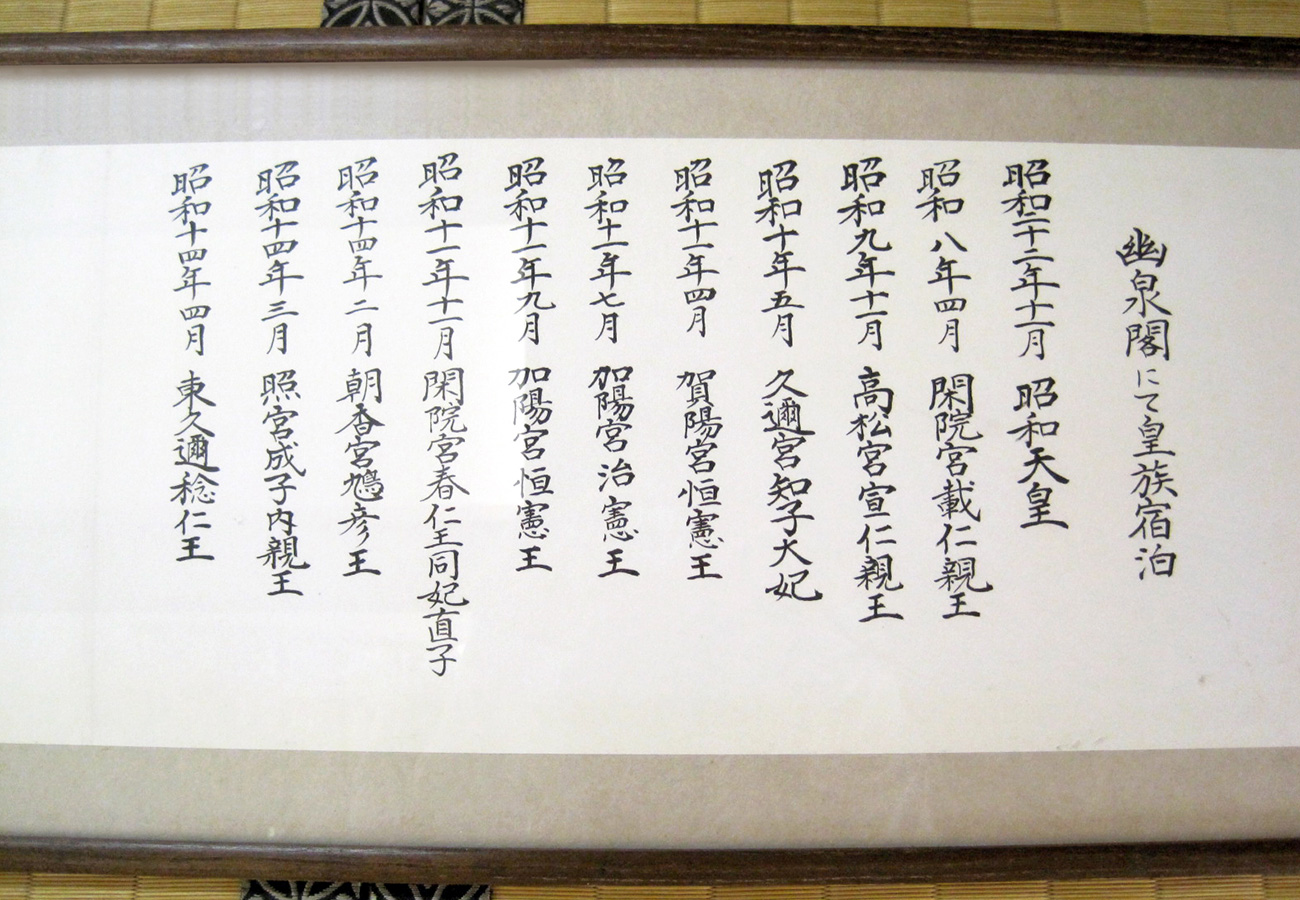 幽泉閣にて皇族宿泊
昭和二十二年十一月 昭和天皇
昭和八年四月 閑院宮載仁親王
昭和九年十一月 高松宮宣仁親王
昭和十年五月 久邇宮知子大妃
昭和十一年四月 賀陽宮恒憲王
昭和十一年七月 賀陽宮治憲王
昭和十一年九月 加陽宮恒憲王
昭和十一年十一月 閑院宮春仁王同妃直子
昭和十四年二月 朝香宮鳩彦王
昭和十四年三月 照宮成子内親王
昭和十四年四月 東久邇稔仁王